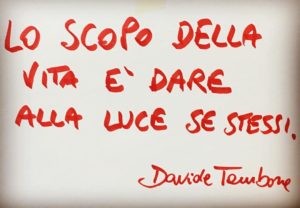 LO SCOPO DELLA
VITA E' DARE
ALLA LUCE SE STESSI.
Davide Tambone